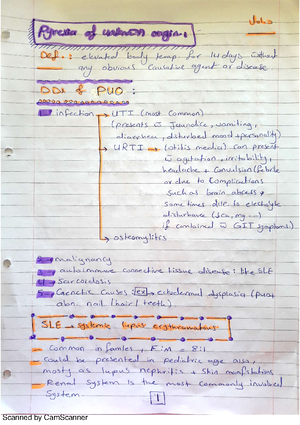 Pyrexia of unknown origin:
Def.: elevated body temp for 14 days without
any obvious causative agent or disease
DDx of PUO:
infection → UTI (most common)
(presents c̄ Jaundice, vomiting,
diarrhea, disturbed mood + personality)
URTI → (otitis media) can present
c̄ agitation, irritability,
headache + convulsion (febrile
or due to complications
such as brain abscess +
some times due to electrolyte
disturbance (↓ca, mg...)
if combined c̄ GIT symptoms)
→ osteomylitis
2 malignancy
autoimmune connective tissue disease: like SLE
4 Sarcoidosis
5 Genetic Causes ectodermal dysplasia (
abn. nail/hair/teeth)
SLE → systemic lupus erythematosus
common in females, F:M = 8:1
could be presented in pediatric age also,
mostly as lupus nephritis + skin manifstations
Renal System is the most commonly involved
System.
1
Scanned by CamScanner